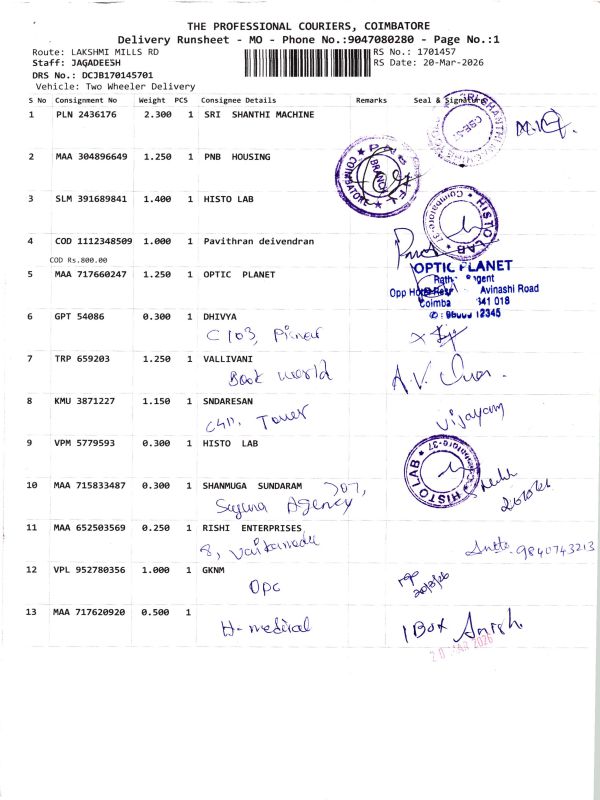 THE PROFESSIONAL COURIERS, COIMBATORE
Delivery Runsheet - MO - Phone No.:9047080280 - Page No.:1
Route: LAKSHMI MILLS RD RS No.: 1701457
Staff: JAGADEESH RS Date: 20-Mar-2026
DRS No.: DCJB170145701
Vehicle: Two Wheeler Delivery
S No Consignment No Weight PCS Consignee Details Remarks Seal & Signature
1 PLN 2436176 2.300 1 SRI SHANTHI MACHINE
2 MAA 304896649 1.250 1 PNB HOUSING
COIMBATORE BRANCH
3 SLM 391689841 1.400 1 HISTO LAB
HISTO LAB
4 COD 1112348509 1.000 1 Pavithran deivendran
COD Rs.800.00
5 MAA 717660247 1.250 1 OPTIC PLANET
OPTIC PLANET
Opp Avinashi Road
Coimba 641 018
12345
6 GPT 54086 0.300 1 DHIVYA
C 103,
7 TRP 659203 1.250 1 VALLIVANI
Book World
8 KMU 3871227 1.150 1 SNDARESAN
C411, Tower Vijayam
9 VPM 5779593 0.300 1 HISTO LAB
HISTO LAB Coimbatore-37
10 MAA 715833487 0.300 1 SHANMUGA SUNDARAM 707,
Suguna Agency
11 MAA 652503569 0.250 1 RISHI ENTERPRISES
8, 9840743213
12 VPL 952780356 1.000 1 GKNM
OPC 20/3/26
13 MAA 717620920 0.500 1
H-medical 1 Box
20 MAR 2026